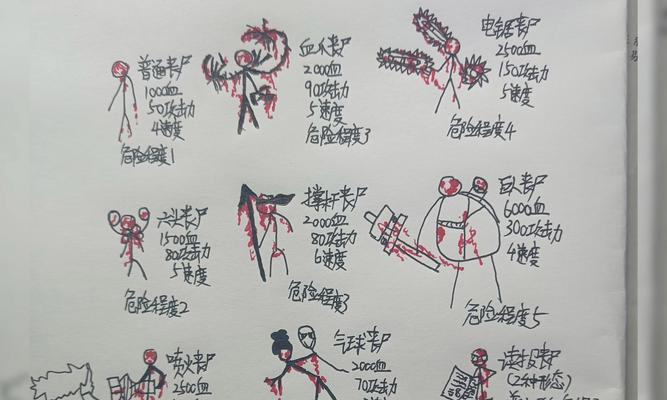 普通丧尸
1000血
50攻击力
4速度
危险程度1
血爪丧尸
2000血
90攻击力
5速度
危险程度3
电锯丧尸
2500血
150攻击力
5速度
危险程度4
丧尸
1500血
80攻击力
5速度
危险程度2
撑杆丧尸
2000血
80攻击力
6速度
危险程度3
巨人丧尸
6000血
300攻击力
4速度
危险程度5
喷火丧尸
2500血
气球丧尸
2000血
70攻击力
读报丧尸
(2种形态)